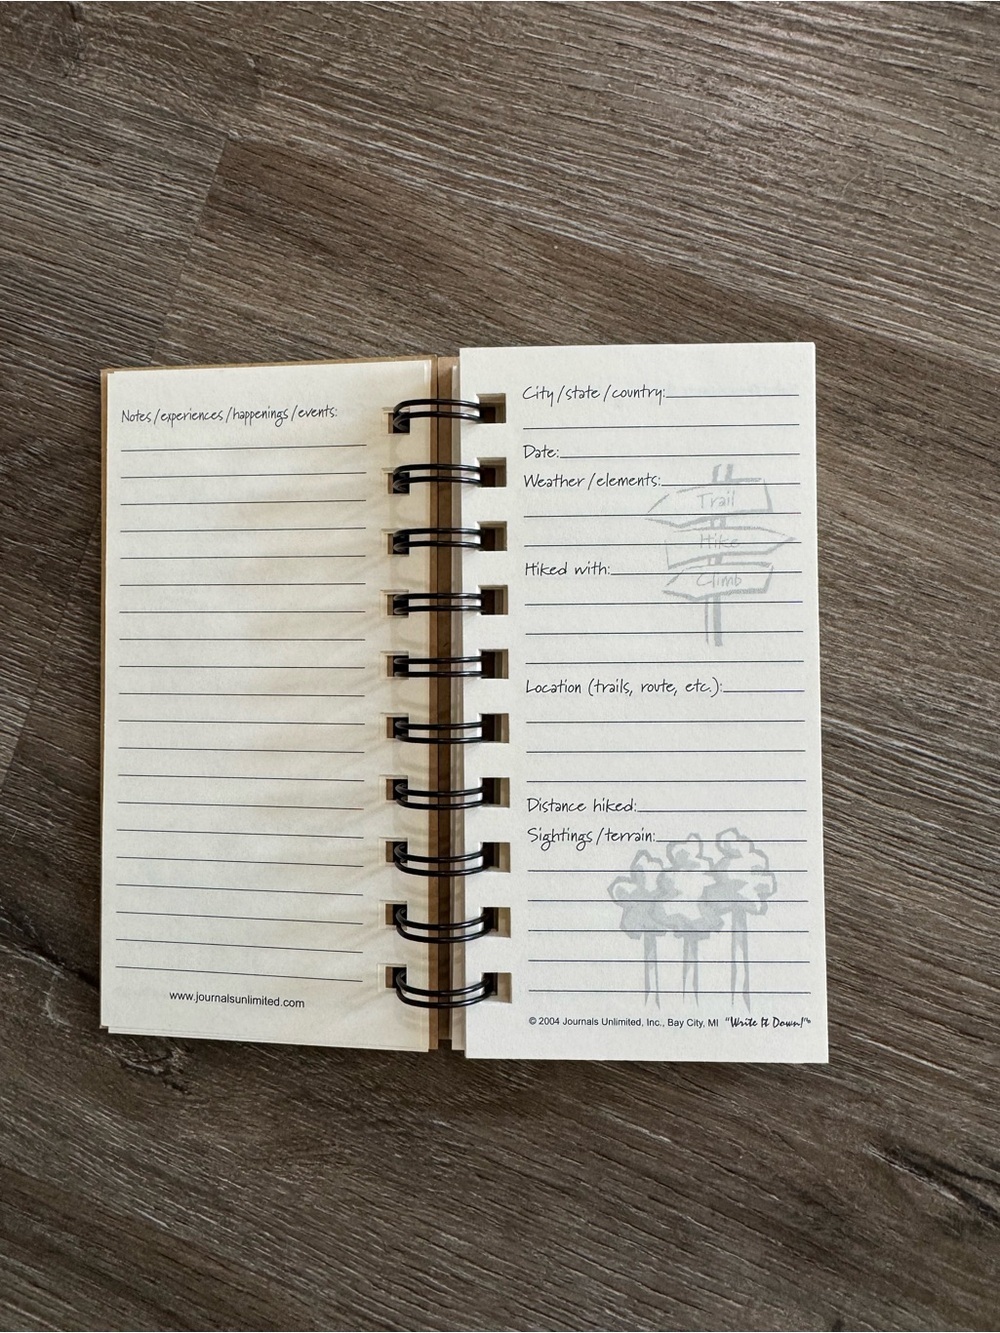 Notes/experiences/happenings/events:
www.journalsunlimited.com
City/state/country:
Date:
Weather/elements:
Trail
Hike
Hiked with:
Climb
Location (trails, route, etc.):
Distance hiked:
Sightings/terrain:
© 2004 Journals Unlimited, Inc., Bay City, MI "Write It Down!"